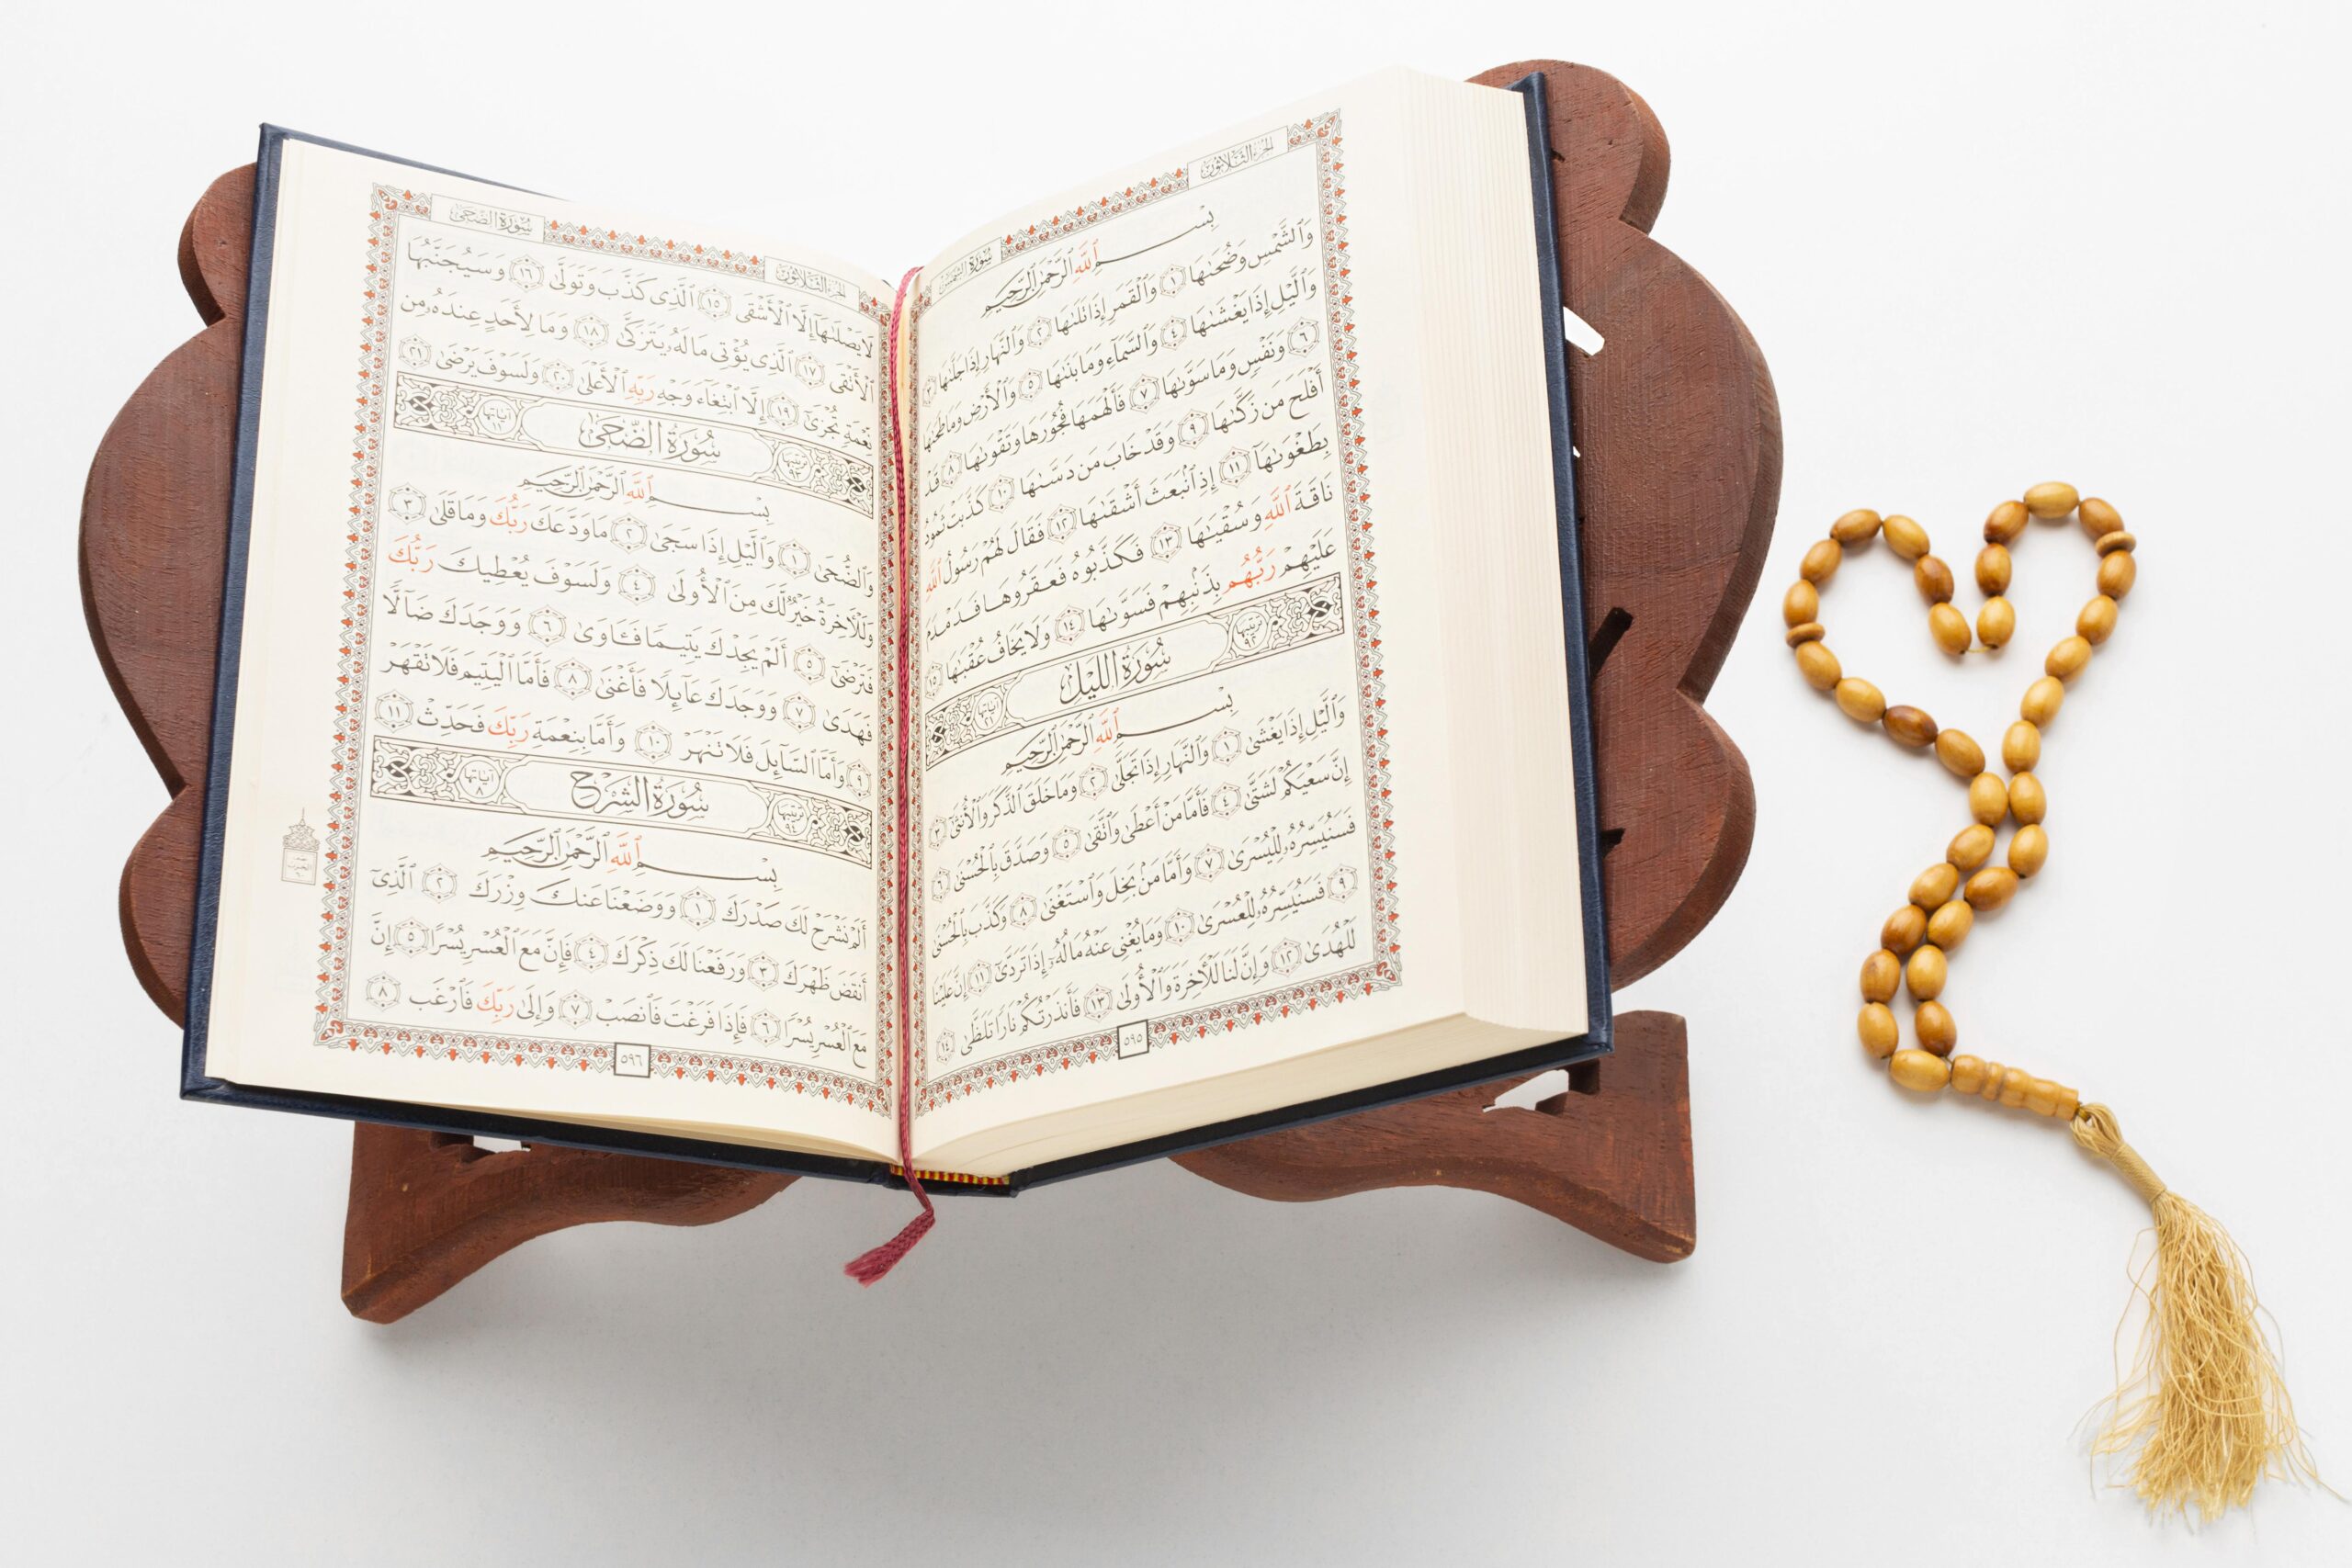 الجزء الثلاثون سورة الشمس
بِسْمِ ٱللَّهِ ٱلرَّحْمَٰنِ ٱلرَّحِيمِ
وَٱلشَّمْسِ وَضُحَىٰهَا ١ وَٱلْقَمَرِ إِذَا تَلَىٰهَا ٢ وَٱلنَّهَارِ إِذَا جَلَّىٰهَا ٣
وَٱلَّيْلِ إِذَا يَغْشَىٰهَا ٤ وَٱلسَّمَآءِ وَمَا بَنَىٰهَا ٥ وَٱلْأَرْضِ وَمَا طَحَىٰهَا
٦ وَنَفْسٍ وَمَا سَوَّىٰهَا ٧ فَأَلْهَمَهَا فُجُورَهَا وَتَقْوَىٰهَا ٨ قَدْ
أَفْلَحَ مَن زَكَّىٰهَا ٩ وَقَدْ خَابَ مَن دَسَّىٰهَا ١٠ كَذَّبَتْ ثَمُودُ
بِطَغْوَىٰهَآ ١١ إِذِ ٱنۢبَعَثَ أَشْقَىٰهَا ١٢ فَقَالَ لَهُمْ رَسُولُ ٱللَّهِ
نَاقَةَ ٱللَّهِ وَسُقْيَٰهَا ١٣ فَكَذَّبُوهُ فَعَقَرُوهَا فَدَمْدَمَ
عَلَيْهِمْ رَبُّهُم بِذَنۢبِهِمْ فَسَوَّىٰهَا ١٤ وَلَا يَخَافُ عُقْبَٰهَا ١٥
ترتيبها ٩٢ سُورَةُ الليل آياتها ٢١
بِسْمِ ٱللَّهِ ٱلرَّحْمَٰنِ ٱلرَّحِيمِ
وَٱلَّيْلِ إِذَا يَغْشَىٰ ١ وَٱلنَّهَارِ إِذَا تَجَلَّىٰ ٢ وَمَا خَلَقَ ٱلذَّكَرَ وَٱلْأُنثَىٰٓ ٣
إِنَّ سَعْيَكُمْ لَشَتَّىٰ ٤ فَأَمَّا مَنْ أَعْطَىٰ وَٱتَّقَىٰ ٥ وَصَدَّقَ بِٱلْحُسْنَىٰ ٦
فَسَنُيَسِّرُهُۥ لِلْيُسْرَىٰ ٧ وَأَمَّا مَنۢ بَخِلَ وَٱسْتَغْنَىٰ ٨ وَكَذَّبَ بِٱلْحُسْنَىٰ
٩ فَسَنُيَسِّرُهُۥ لِلْعُسْرَىٰ ١٠ وَمَا يُغْنِى عَنْهُ مَالُهُۥٓ إِذَا تَرَدَّىٰٓ ١١ إِنَّ عَلَيْنَا
لَلْهُدَىٰ ١٢ وَإِنَّ لَنَا لَلْءَاخِرَةَ وَٱلْأُولَىٰ ١٣ فَأَنذَرْتُكُمْ نَارًا تَلَظَّىٰ ١٤
٥٩٥
الجزء الثلاثون سورة الضحى
لَا يَصْلَىٰهَآ إِلَّا ٱلْأَشْقَى ١٥ ٱلَّذِى كَذَّبَ وَتَوَلَّىٰ ١٦ وَسَيُجَنَّبُهَا
ٱلْأَتْقَى ١٧ ٱلَّذِى يُؤْتِى مَالَهُۥ يَتَزَكَّىٰ ١٨ وَمَا لِأَحَدٍ عِندَهُۥ مِن
نِّعْمَةٍ تُجْزَىٰٓ ١٩ إِلَّا ٱبْتِغَآءَ وَجْهِ رَبِّهِ ٱلْأَعْلَىٰ ٢٠ وَلَسَوْفَ يَرْضَىٰ ٢١
ترتيبها ٩٣ سُورَةُ الضُّحَى آياتها ١١
بِسْمِ ٱللَّهِ ٱلرَّحْمَٰنِ ٱلرَّحِيمِ
وَٱلضُّحَىٰ ١ وَٱلَّيْلِ إِذَا سَجَىٰ ٢ مَا وَدَّعَكَ رَبُّكَ وَمَا قَلَىٰ ٣
وَلَلْءَاخِرَةُ خَيْرٌ لَّكَ مِنَ ٱلْأُولَىٰ ٤ وَلَسَوْفَ يُعْطِيكَ رَبُّكَ
فَتَرْضَىٰٓ ٥ أَلَمْ يَجِدْكَ يَتِيمًا فَـَٔاوَىٰ ٦ وَوَجَدَكَ ضَآلًّا
فَهَدَىٰ ٧ وَوَجَدَكَ عَآئِلًا فَأَغْنَىٰ ٨ فَأَمَّا ٱلْيَتِيمَ فَلَا تَقْهَرْ
٩ وَأَمَّا ٱلسَّآئِلَ فَلَا تَنْهَرْ ١٠ وَأَمَّا بِنِعْمَةِ رَبِّكَ فَحَدِّثْ ١١
ترتيبها ٩٤ سُورَةُ الشَّرْحِ آياتها ٨
بِسْمِ ٱللَّهِ ٱلرَّحْمَٰنِ ٱلرَّحِيمِ
أَلَمْ نَشْرَحْ لَكَ صَدْرَكَ ١ وَوَضَعْنَا عَنكَ وِزْرَكَ ٢ ٱلَّذِىٓ
أَنقَضَ ظَهْرَكَ ٣ وَرَفَعْنَا لَكَ ذِكْرَكَ ٤ فَإِنَّ مَعَ ٱلْعُسْرِ يُسْرًا ٥ إِنَّ
مَعَ ٱلْعُسْرِ يُسْرًا ٦ فَإِذَا فَرَغْتَ فَٱنصَبْ ٧ وَإِلَىٰ رَبِّكَ فَٱرْغَب ٨
٥٩٦